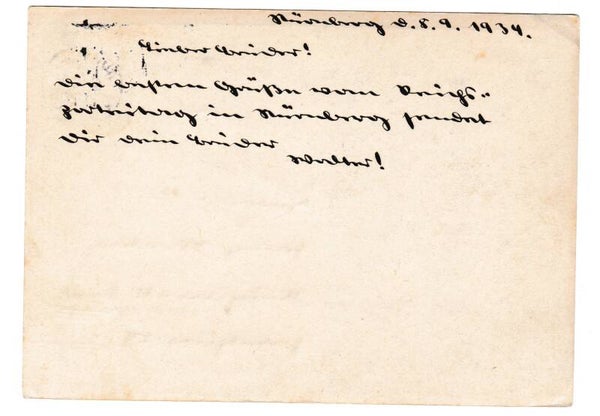 Nürnberg d. 8.9. 1934.
Lieber Bruder!
Die besten Grüße vom Reichs-
parteitag in Nürnberg sendet
Dir dein Bruder
Walter!